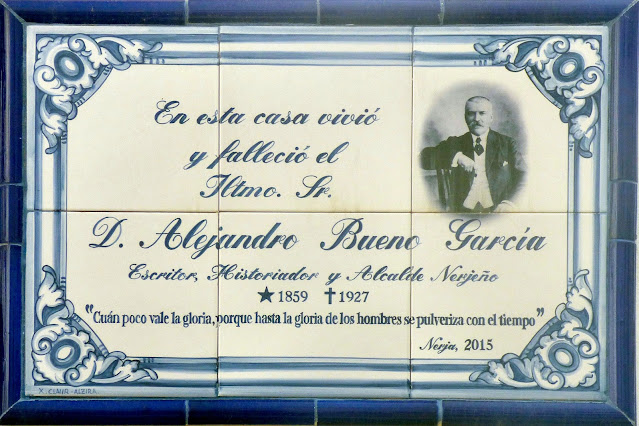 En esta casa vivió
y falleció el
Iltmo. Sr.
D. Alejandro Bueno García
Escritor, Historiador y Alcalde Nerjeño
★1859 ✝1927
"Cuán poco vale la gloria, porque hasta la gloria de los hombres se pulveriza con el tiempo"
Nerja, 2015